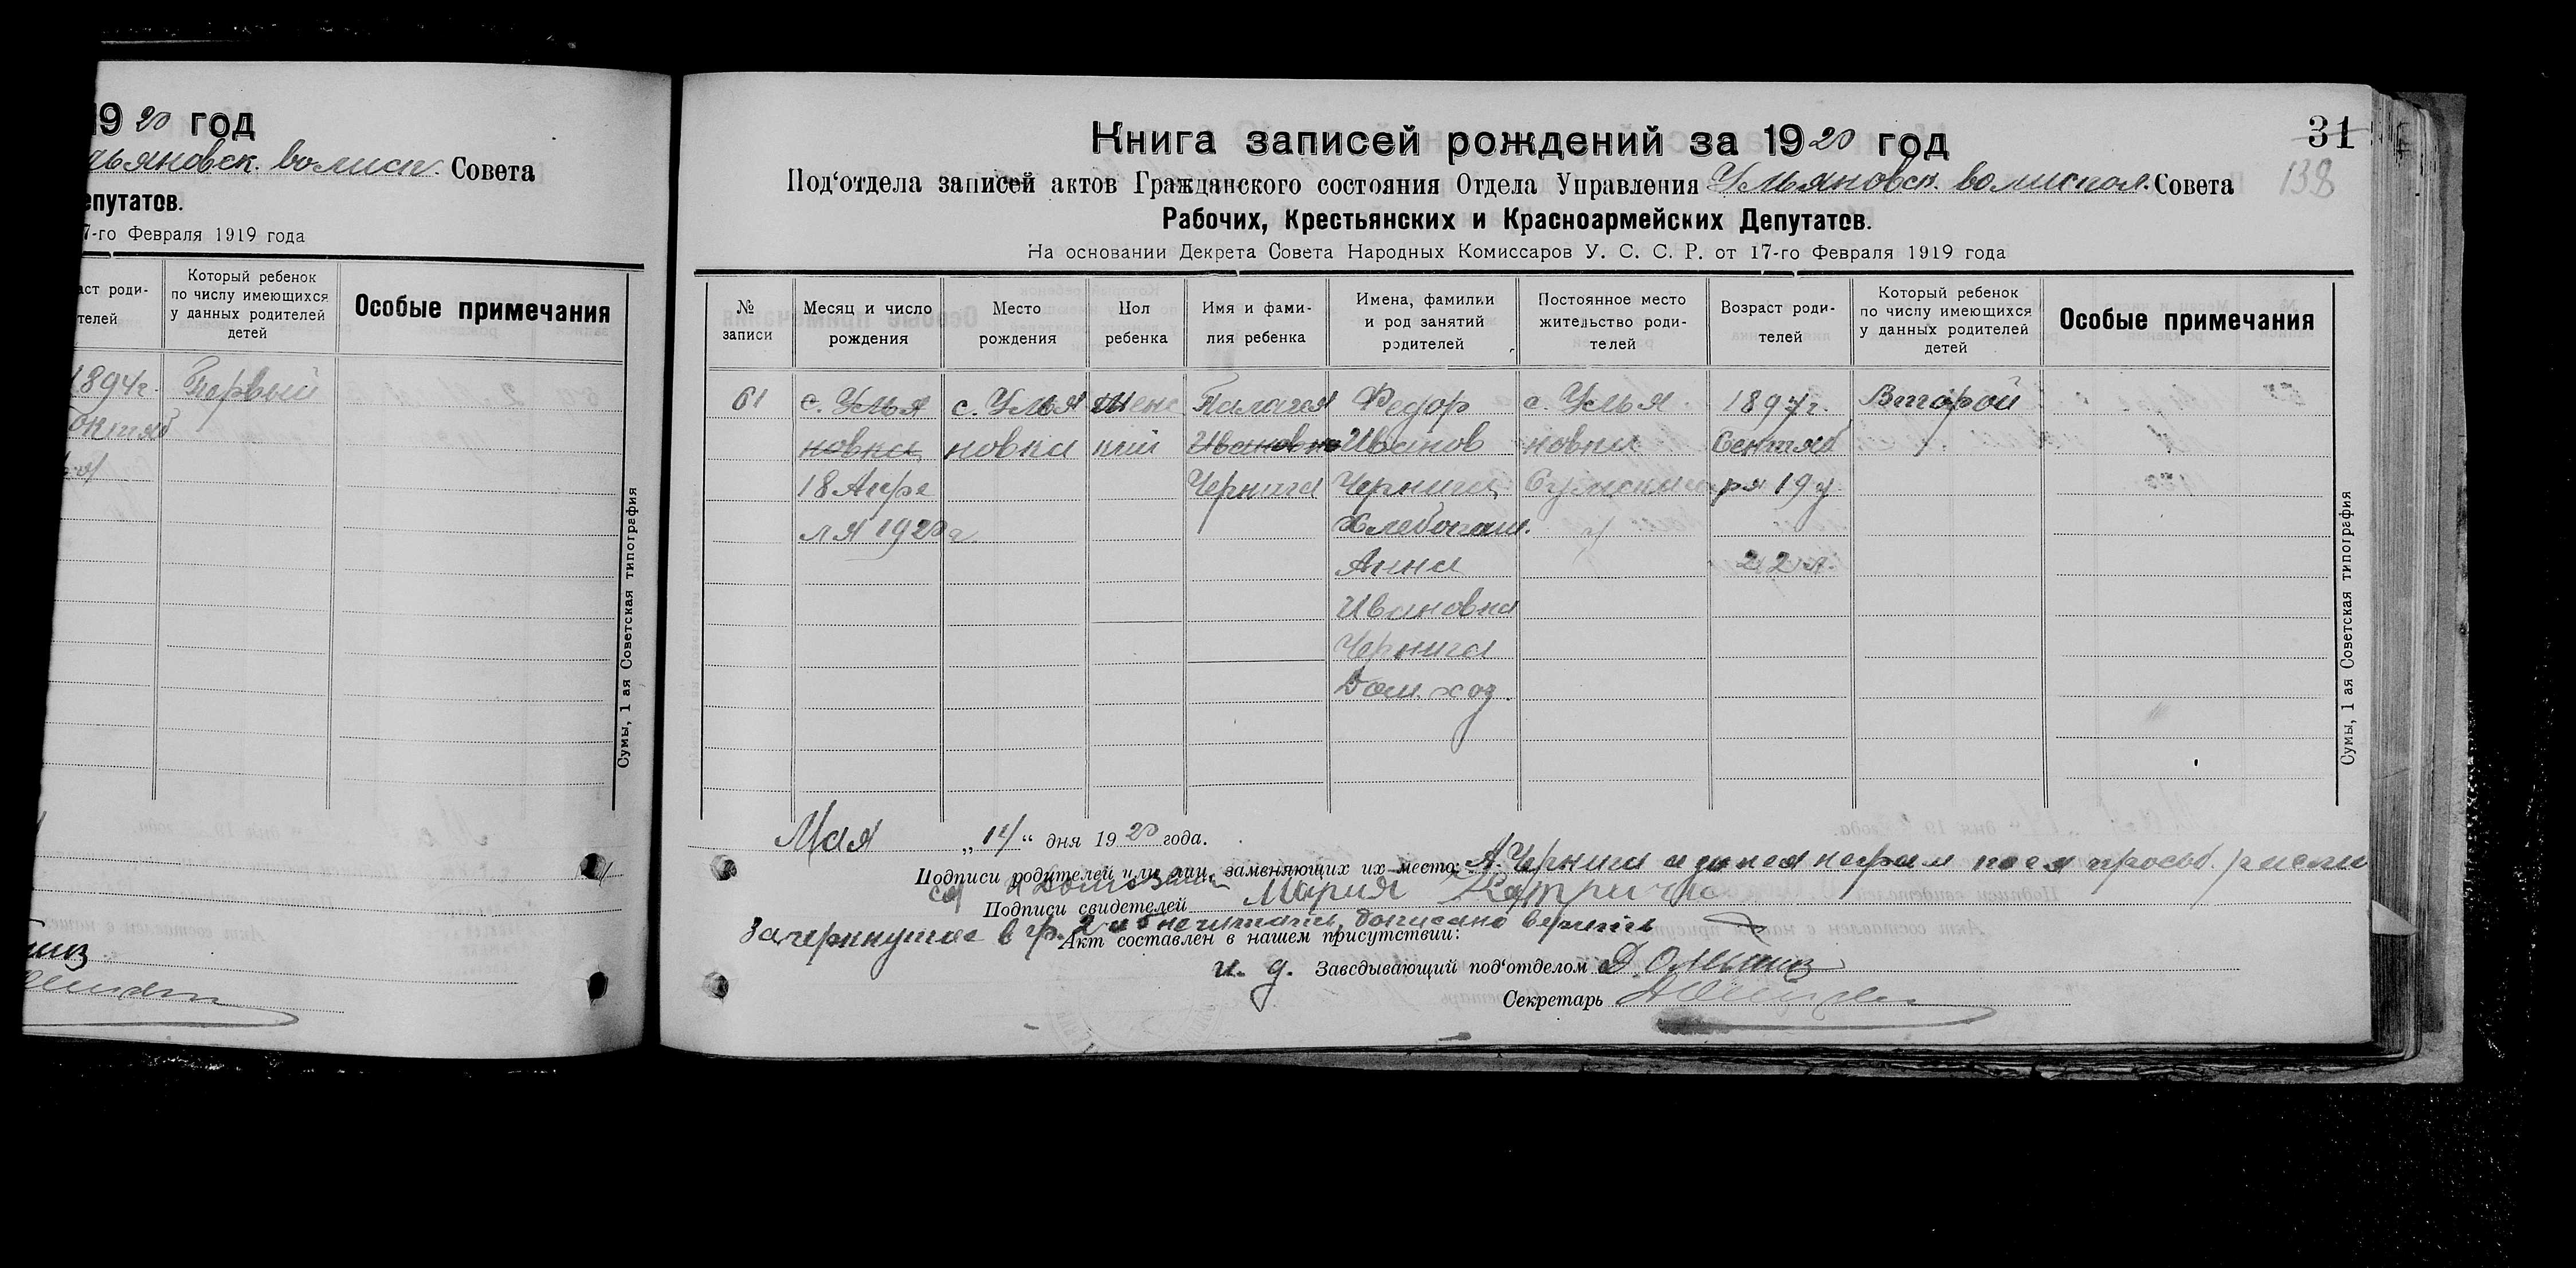 19 20 год
льяновск. волисп. Совета
епутатов.
7-го Февраля 1919 года
аст роди-
телей
Который ребенок
по числу имеющихся
у данных родителей
детей
Особые примечания
1894г. Первый
октяб
Сумы, 1 ая Советская типография
31
138
Книга записей рождений за 19 20 год
Под‘отдела записей актов Гражданского состояния Отдела Управления Ульяновск. волиспол. Совета
Рабочих, Крестьянских и Красноармейских Депутатов.
На основании Декрета Совета Народных Комиссаров У. С. С. Р. от 17-го Февраля 1919 года
№
записи
Месяц и число
рождения
Место
рождения
Пол
ребенка
Имя и фами-
лия ребенка
Имена, фамилии
и род занятий
родителей
Постоянное место
жительство роди-
телей
Возраст роди-
телей
Который ребенок
по числу имеющихся
у данных родителей
детей
Особые примечания
61 с. Улья с. Улья женс Палагея Федор с. Улья 1897г. Второй
новка новка кий Ивановна Иванов новка Сентяб
18 Апре Черныга Черныга Сумским ря 19 у
ля 1920г Хлебопаш. у
Анна 22 л.
Ивановна
Черныга
Дом. хоз.
Сумы, 1 ая Советская типография
Мая „14“ дня 19 20 года.
Подписи родителей или лиц, заменяющих их место: А. Черныга а за нея неграм по ея прособ. распи
Подписи свидетелей Мария
Зачеркнутое в гр. 2 и 5 не читать, дописано верить
Акт составлен в нашем присутствии:
и. д. Заведывающий под‘отделом
Секретарь